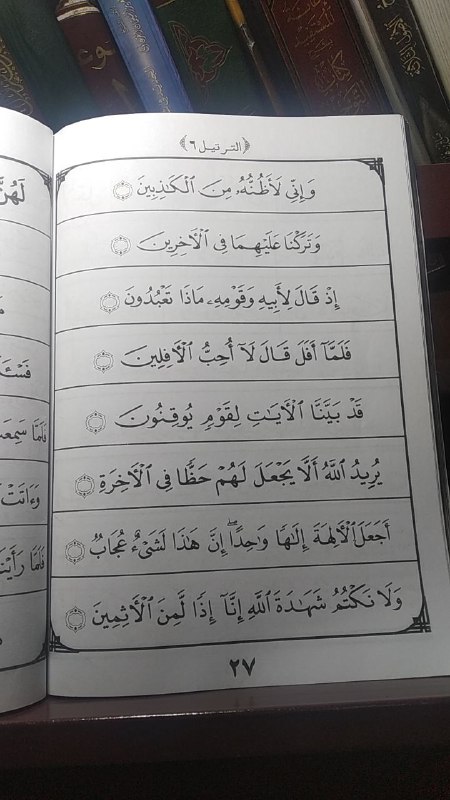 ﴿الترتيل ٦﴾
وَإِنِّي لَأَظُنُّهُۥ مِنَ ٱلْكَٰذِبِينَ
وَتَرَكْنَا عَلَيْهِمَا فِي ٱلْأٓخِرِينَ
إِذْ قَالَ لِأَبِيهِ وَقَوْمِهِۦ مَاذَا تَعْبُدُونَ
فَلَمَّآ أَفَلَ قَالَ لَآ أُحِبُّ ٱلْأٓفِلِينَ
قَدْ بَيَّنَّا ٱلْأٓيَٰتِ لِقَوْمٍ يُوقِنُونَ
يُرِيدُ ٱللَّهُ أَلَّا يَجْعَلَ لَهُمْ حَظًّا فِي ٱلْأٓخِرَةِ
أَجَعَلَ ٱلْأٓلِهَةَ إِلَٰهًا وَٰحِدًا ۖ إِنَّ هَٰذَا لَشَيْءٌ عُجَابٌ
وَلَا نَكْتُمُ شَهَٰدَةَ ٱللَّهِ إِنَّآ إِذًا لَّمِنَ ٱلْأٓثِمِينَ
٢٧
فَلَمَّا سَمِعَتْ
فَلَمَّا رَأَيْنَ